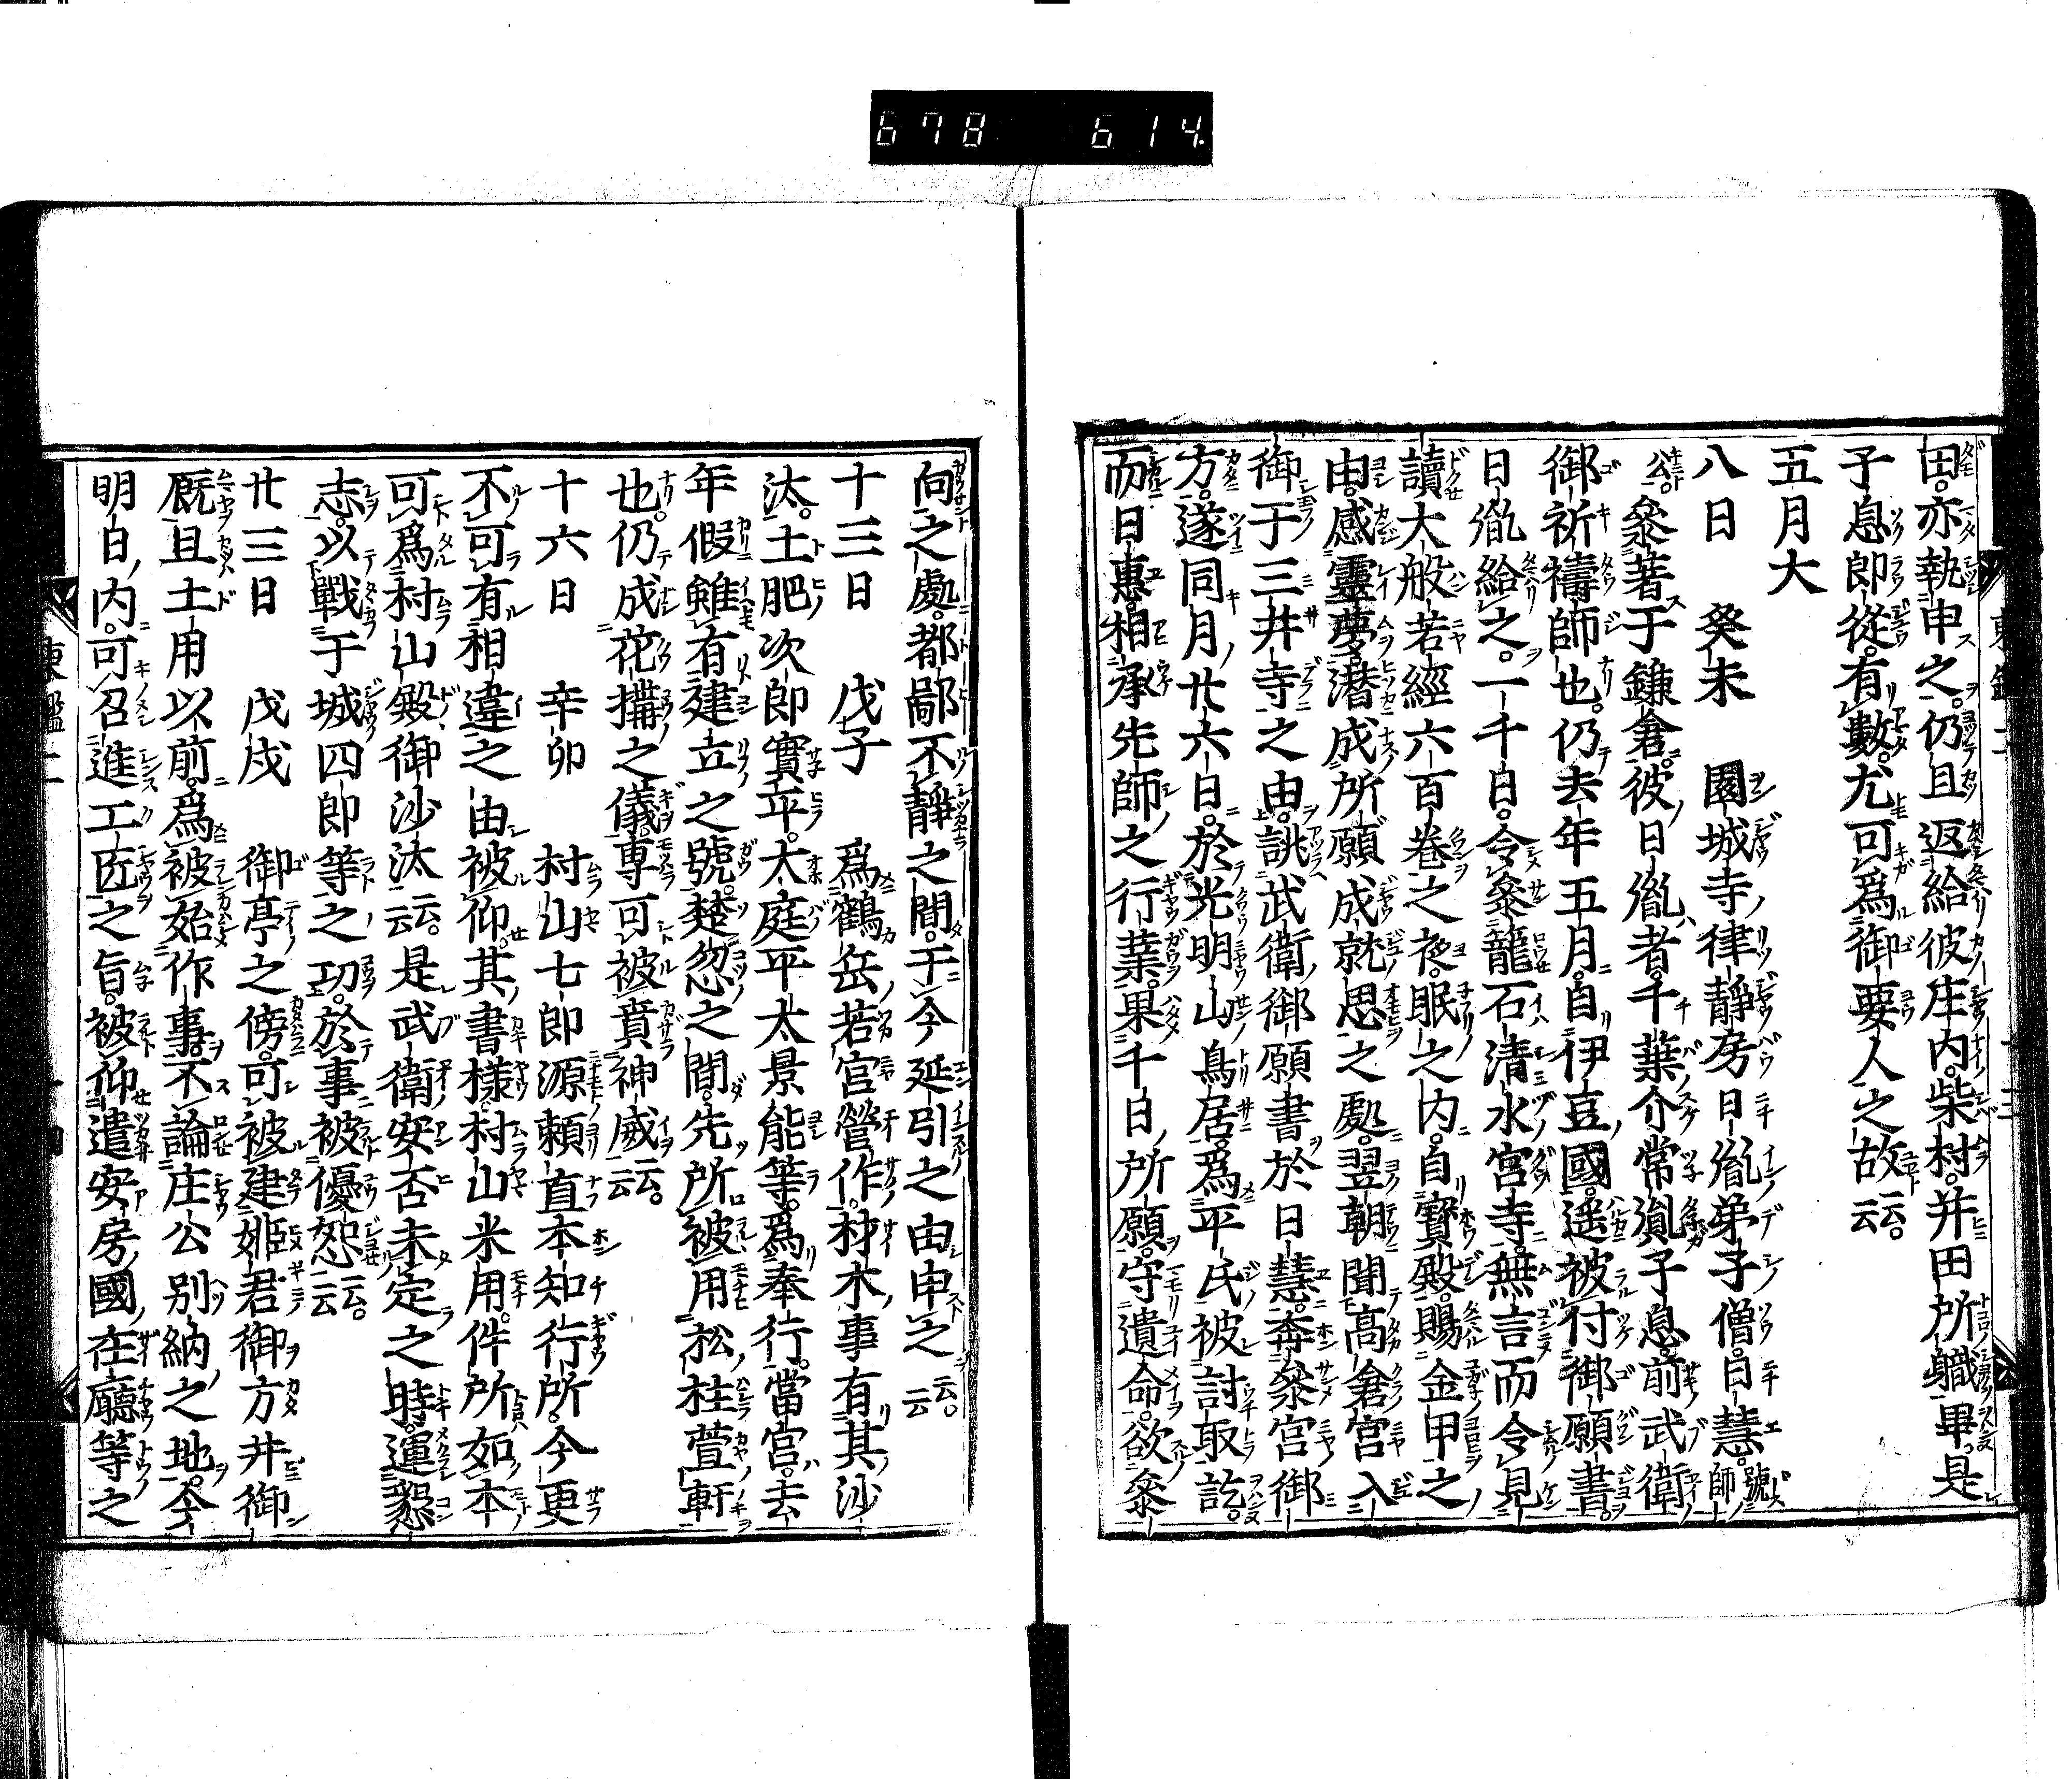 678 614
田亦執申之仍且返給彼庄内柴村并田所職畢是
子息郎從有數尤可爲御要人之故云云
五月大
八日 癸未 園城寺律靜房日胤弟子僧日慧號師
公參著于鎌倉彼日胤者千葉介常胤子息前武衛
御祈禱師也仍去年五月自伊豆國遥被付御願書
日胤給之一千日令參籠石清水宮寺無言而令見
讀大般若經六百巻之夜眠之内自寳殿賜金甲之
由感靈夢潜成所願成就思之處翌朝聞高倉宮入
御于三井寺之由誂武衛御願書於日慧奔參宮御
方遂同月廿六日於光明山鳥居爲平氏被討取訖
而日惠相承先師之行業果千日所願守遺命欲參
向之處都鄙不靜之間于今延引之由申之云云
十三日 戊子 爲鶴岳若宮營作材木事有其沙
汰土肥次郎實平太庭平太景能等爲奉行當宮去
年假雖有建立之號楚忽之間先所被用松柱萱軒
也仍成花搆之儀専可被賁神威云云
十六日 辛卯 村山七郎源頼直本知行所今更
不可有相違之由被仰其書様村山米用件所如本
可爲村山殿御沙汰云云是武衛安否未定之時運懇
志以戰于城四郎等之功於事被優恕云云
廿三日 戊戌 御亭之傍可被建姫君御方并御
厩且土用以前爲被始作事不論庄公別納之地今
明日内可召進工匠之旨被仰遣安房國在廳等之